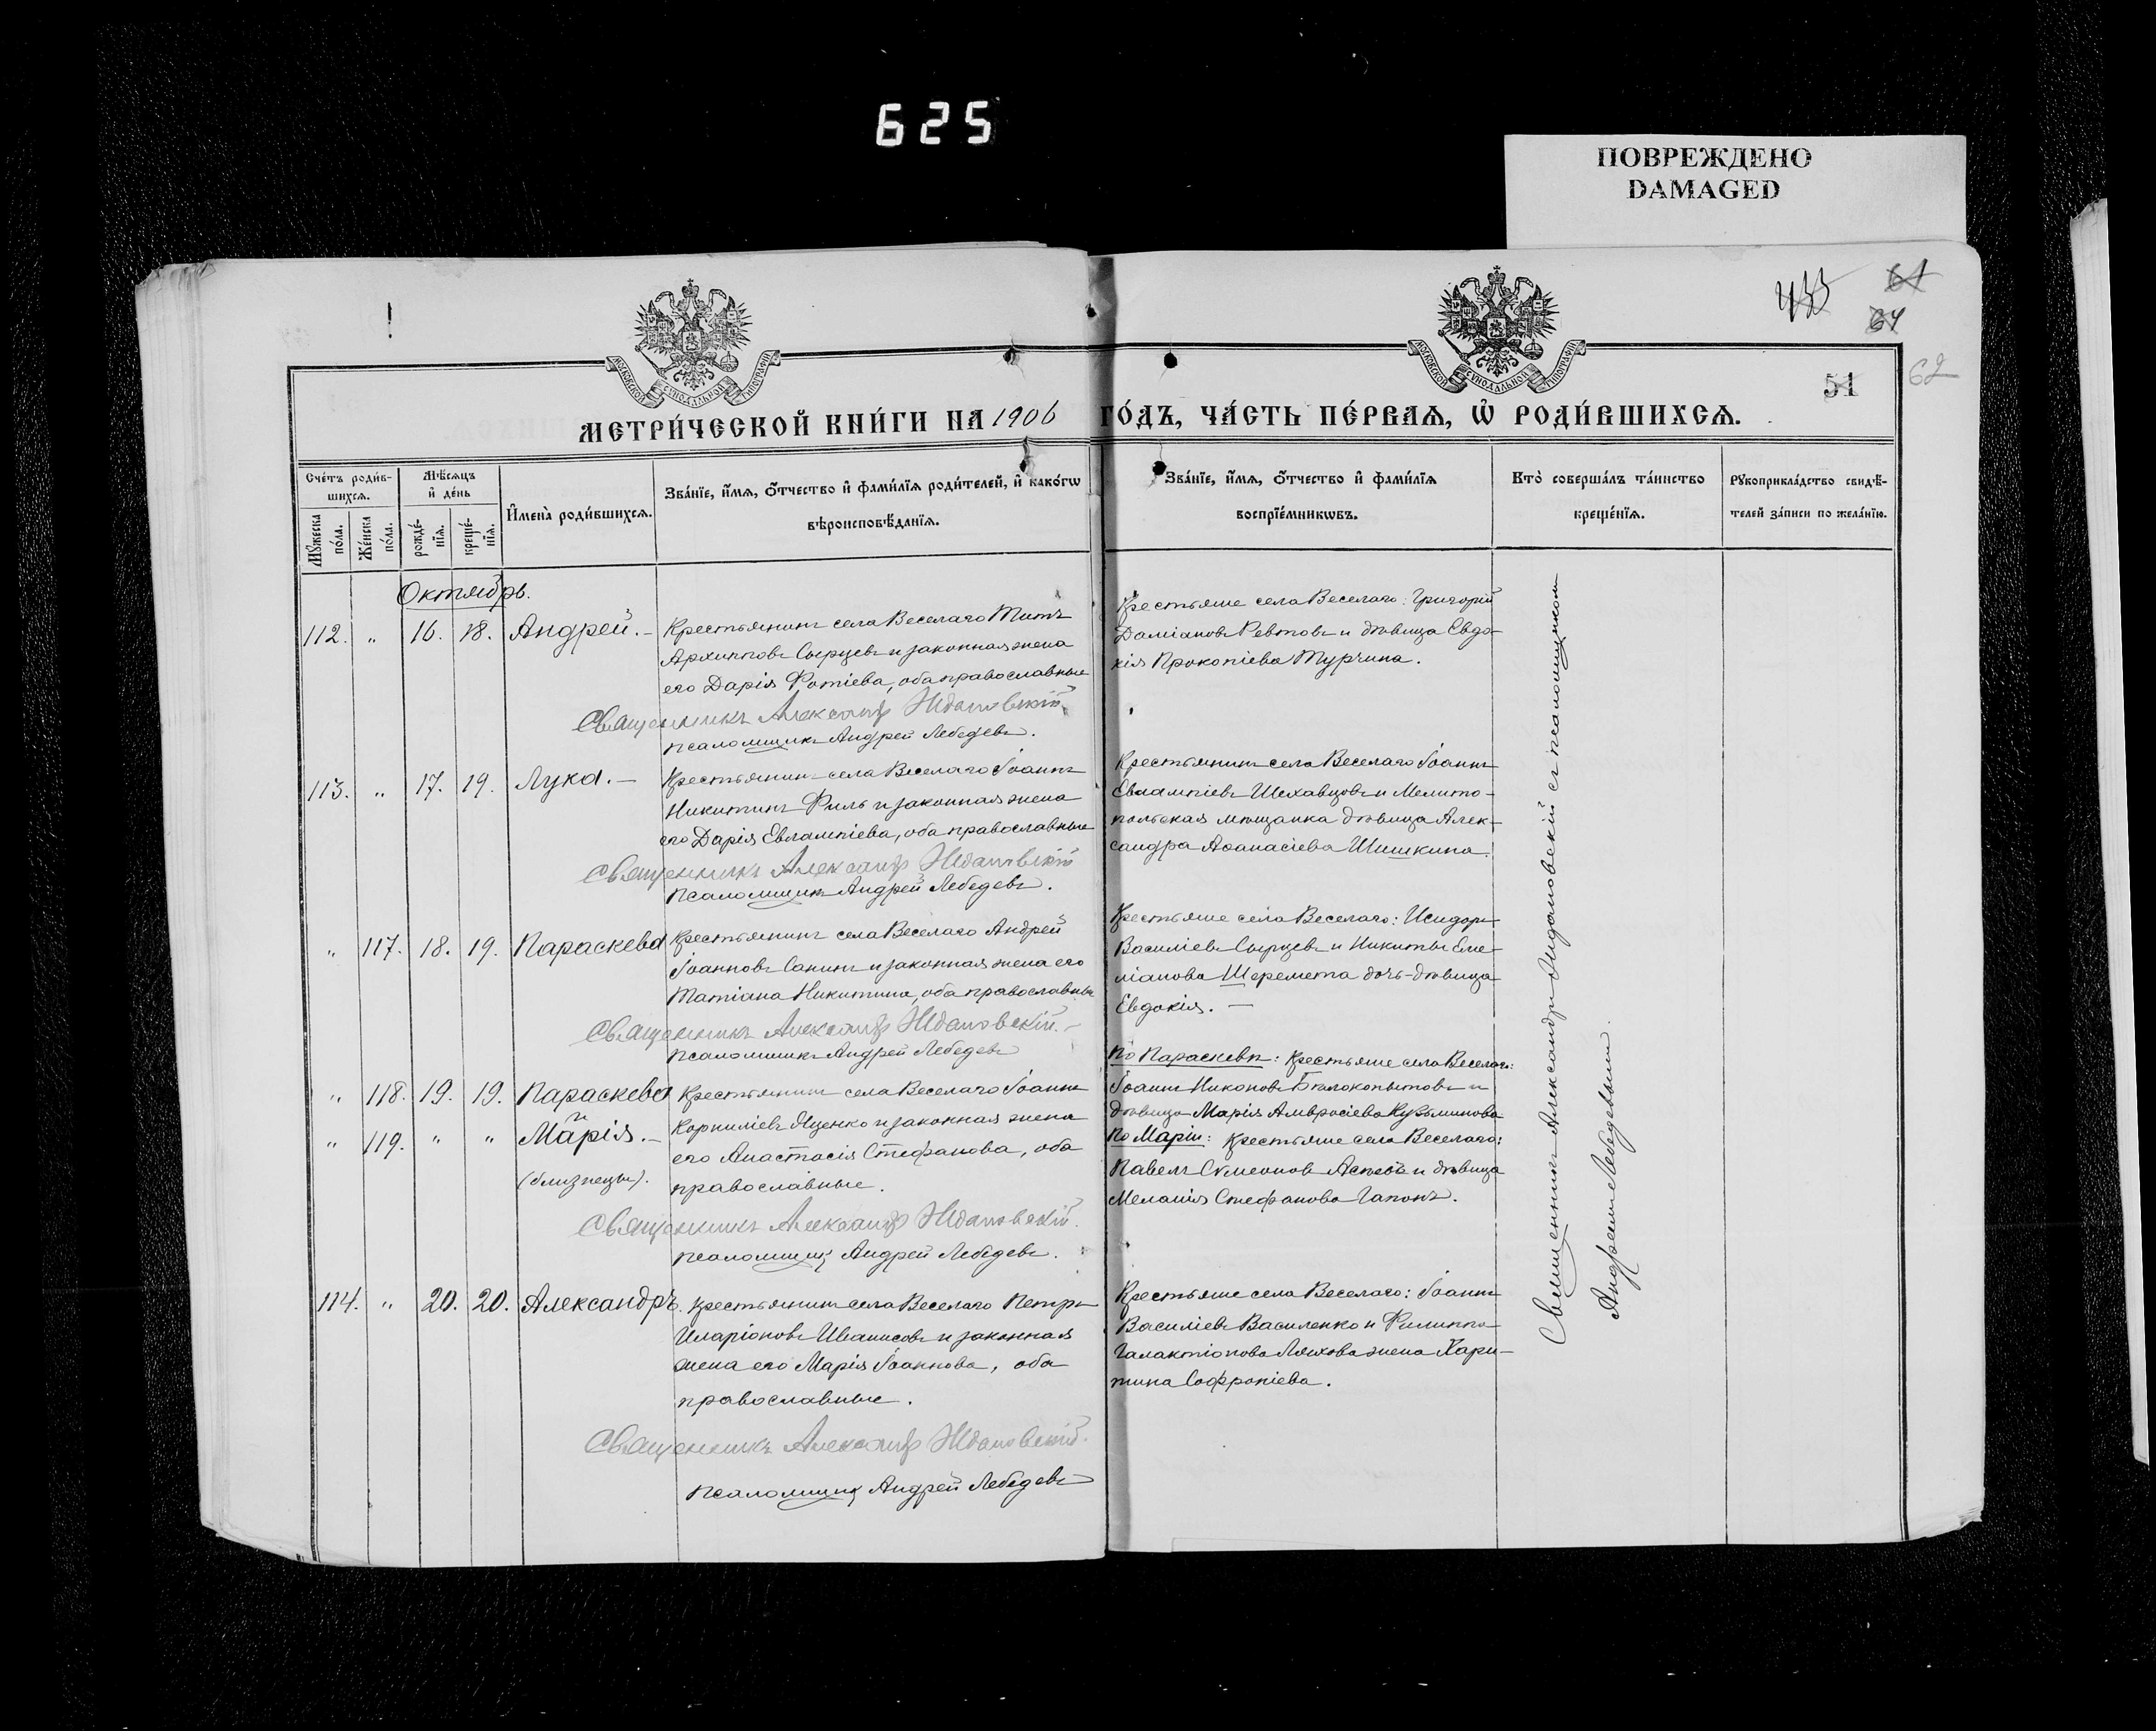 625
ПОВРЕЖДЕНО
DAMAGED
433
61
64
62
51
МОСКОВСКОЙ СѴНОДАЛЬНОЙ ТИПОГРАФІИ
МОСКОВСКОЙ СѴНОДАЛЬНОЙ ТИПОГРАФІИ
МЕТРИ́ЧЕСКОЙ КНИ́ГИ НА 1906 ГО́ДЪ, ЧА́СТЬ ПЕ́РВАѦ, Ѡ҆ РОДИ́ВШИХСѦ.
Сче́тъ роди́в-
шихсѧ.
Мꙋжеска по́ла.
Же́нска по́ла.
Мѣ́сѧцъ и҆ де́нь
рожде́-
нїѧ.
креще́-
нїѧ.
И҆мена̀ роди́вшихсѧ.
Зва́нїе, и҆́мѧ, ѻ҆́тчество и҆ фами́лїѧ роди́телей, и҆ како́гѡ
вѣроисповѣ́данїѧ.
Зва́нїе, и҆́мѧ, ѻ҆́тчество и҆ фами́лїѧ
воспрїе́мникѡвъ.
Кто̀ соверша́лъ та́инство
креще́нїѧ.
Рꙋкоприкла́дство свидѣ́-
телей за́писи по жела́нїю.
Октябрь.
112. „ 16. 18. Андрей. – Крестьянинъ села Веселаго Титъ
Архиповъ Сырцевъ и законная жена
его Дарія Фотіева, оба православные
Священникъ Александръ Ждановскій.
псаломщикъ Андрей Лебедевъ.
Крестьяне села Веселаго: Григорій
Даміановъ Ревтовъ и дѣвица Евдо-
кія Прокопіева Турчина.
113. „ 17. 19. Лука. – Крестьянинъ села Веселаго Іоаннъ
Никитинъ Филь и законная жена
его Дарія Евлампіева, оба православные
Священникъ Александръ Ждановскій
Псаломщикъ Андрей Лебедевъ.
Крестьянинъ села Веселаго Іоаннъ
Евлампіевъ Шехавцовъ и Мелито-
польская мѣщанка дѣвица Алек-
сандра Аѳанасіева Шишкина.
„ 117. 18. 19. Параскева Крестьянинъ села Веселаго Андрей
Іоанновъ Санинъ и законная жена его
Татіана Никитина, оба православные
Священникъ Александръ Ждановскій. –
псаломщикъ Андрей Лебедевъ
Крестьяне села Веселаго: Исидоръ
Василіевъ Сырцевъ и Никиты Еме-
ліанова Шеремета дочь-дѣвица
Евдокія. –
„ 118. 19. 19. Параскева Крестьянинъ села Веселаго Іоаннъ
и Корниліевъ Яценко и законная жена
„ 119. „ „ Марія. – его Анастасія Стефанова, оба
(близнецы). православные.
Священникъ Александръ Ждановскій.
псаломщикъ Андрей Лебедевъ.
По Параскевѣ: Крестьяне села Веселаго:
Іоаннъ Никоновъ Бѣлокопытовъ и
дѣвица Марія Амвросіева Кузьминова
По Маріи: Крестьяне села Веселаго:
Павелъ Сѵмеонов и дѣвица
Меланія Стефанова Гапонъ.
114. „ 20. 20. Александръ. Крестьянинъ села Веселаго Петръ
Иларіоновъ Иванисовъ и законная
жена его Марія Іоаннова, оба
православные.
Священникъ Александръ Ждановскій.
псаломщикъ Андрей Лебедевъ
Крестьяне села Веселаго: Іоаннъ
Василіевъ Василенко и Филиппа
Галактіонова Ляхова жена Хари-
тина Софроніева.
Священникъ Александръ Ждановскій съ псаломщикомъ
Андреемъ Лебедевымъ.